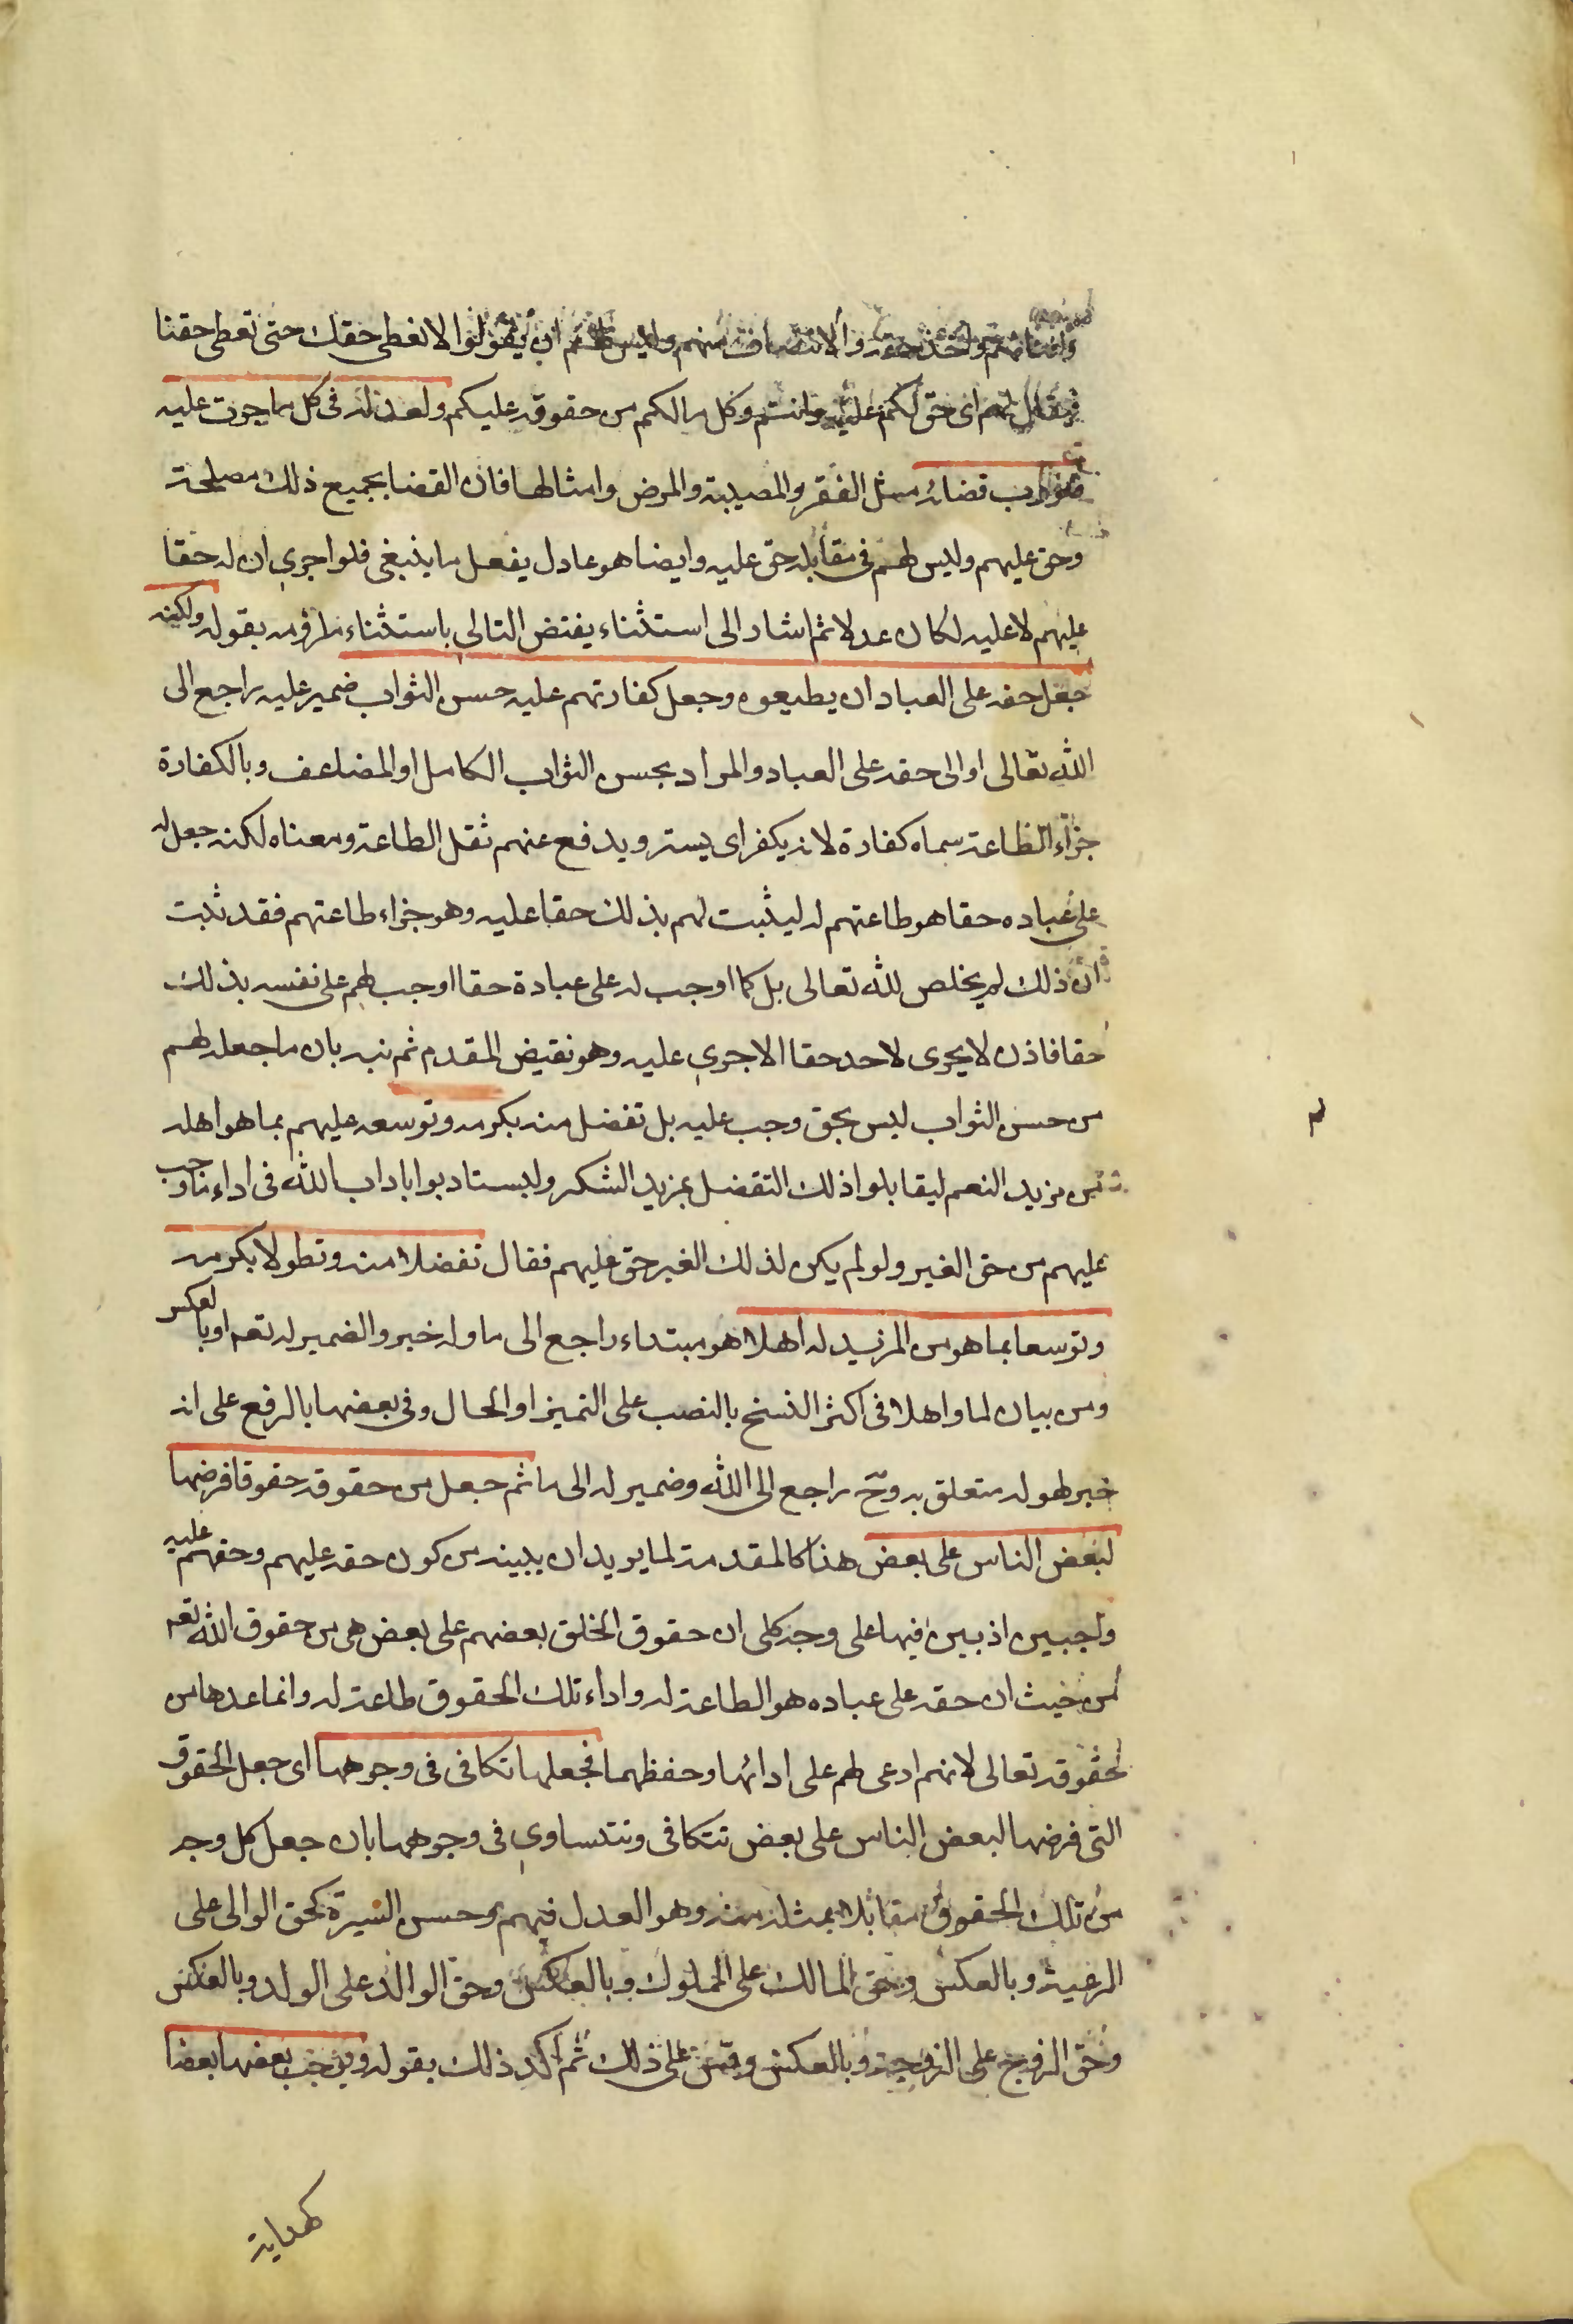 واخذ حقه والانتصاف منهم وليس لهم ان يقولوا لا نعطى حقك حتى تعطى حقنا
فيقال لهم اى حق لكم عليه وانتم وكل مالكم من حقوقه عليكم ولعدله فى كل ما جرت عليه
ضروب قضائه مثل الفقر والمصيبة والمرض وامثالها فان القضا بجميع ذلك مصلحة
وحق عليهم وليس لهم فى مقابله حق عليه وايضا هو عادل يفعل ما ينبغى فلو اجرى ان له حقا
عليهم لا عليه لكان عدلا ثم اشار الى استثناء يفتض التالى باستثناء ملزومه بقوله ولكنه
جعل حقه على العباد ان يطيعوه وجعل كفارتهم عليه حسن الثواب ضمير عليه راجع الى
الله تعالى او الى حقه على العباد والمراد بحسن الثواب الكامل او المضاعف وبالكفارة
جزاء الطاعة سماه كفارة لانه يكفر اى يستر ويدفع عنهم ثقل الطاعة ومعناه لكنه جعل له
على عباده حقا هو طاعتهم له ليثبت لهم بذلك حقا عليه وهو جزاء طاعتهم فقد ثبت
ان ذلك لم يخلص لله تعالى بل كما اوجب له على عبادة حقا اوجب لهم على نفسه بذلك
حقا فاذن لا يجرى لاحد حقا الا جرى عليه وهو نقيض المقدم ثم نبه بان ما جعله لهم
من حسن الثواب ليس بحق وجب عليه بل تفضل منه بكرمه وتوسعه عليهم بما هو اهله
من مزيد النعم ليقابلوا ذلك التفضل بمزيد الشكر وليستادبوا باداب الله فى اداء ما وجب
عليهم من حق الغير ولو لم يكن لذلك الغير حق عليهم فقال تفضلا منه وتطولا بكرمه
وتوسعا بما هو من المزيد له اهلا هو مبتداء راجع الى ما وله خبر والضمير له تعه او بالعكس
ومن بيان لما واهلا فى اكثر النسخ بالنصب على التميز او الحال وفى بعضها بالرفع على انه
خبر لهو له متعلق به وح راجع الى الله وضمير له الى ما ثم جعل من حقوقه حقوقا فرضها
لبعض الناس على بعض هذا كالمقدمة لما يريد ان يبينه من كون حقه عليهم وحقهم عليه
واجبين اذ بين فيها على وجه كلى ان حقوق الخلق بعضهم على بعض هى من حقوق الله تعه
من حيث ان حقه على عباده هو الطاعة له واداء تلك الحقوق طاعة له وانما عدها من
حقوقه تعالى لانهم ادعى لهم على ادائها وحفظهما فجعلها تكافى فى وجوهها اى جعل الحقوق
التى فرضها لبعض الناس على بعض تتكافى وتتساوى فى وجوهها بان جعل كل وجه
من تلك الحقوق مقابلا بمثله منه وهو العدل فيهم وحسن السيرة كحق الوالى على
الرعية وبالعكس وحق المالك على المملوك وبالعكس وحق الوالد على الولد وبالعكس
وحق الزوج على الزوجة وبالعكس وقس على ذلك ثم اكد ذلك بقوله ويوجب بعضها بعضا